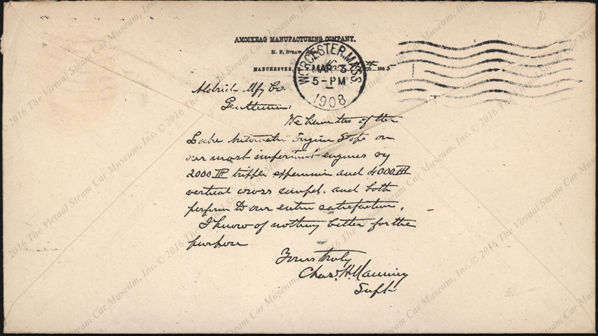 AMOSKEAG MANUFACTURING COMPANY,
H. F. STRAW,
MANCHESTER,
WORCESTER, MASS.
MAR 3
5-PM
1908
Aldrich Mfg Co.
Gentlemen,
We have two of the
Locke Automatic Engine Stops on
our most important engines viz
2000 HP tripple expansion and 4000 HP
vertical cross compd. and both
perform to our entire satisfaction.
I know of nothing better for the
purpose
Yours truly
Chas. H. Manning
Supt.
© 2016 The Virtual Steam Car Museum, Inc.